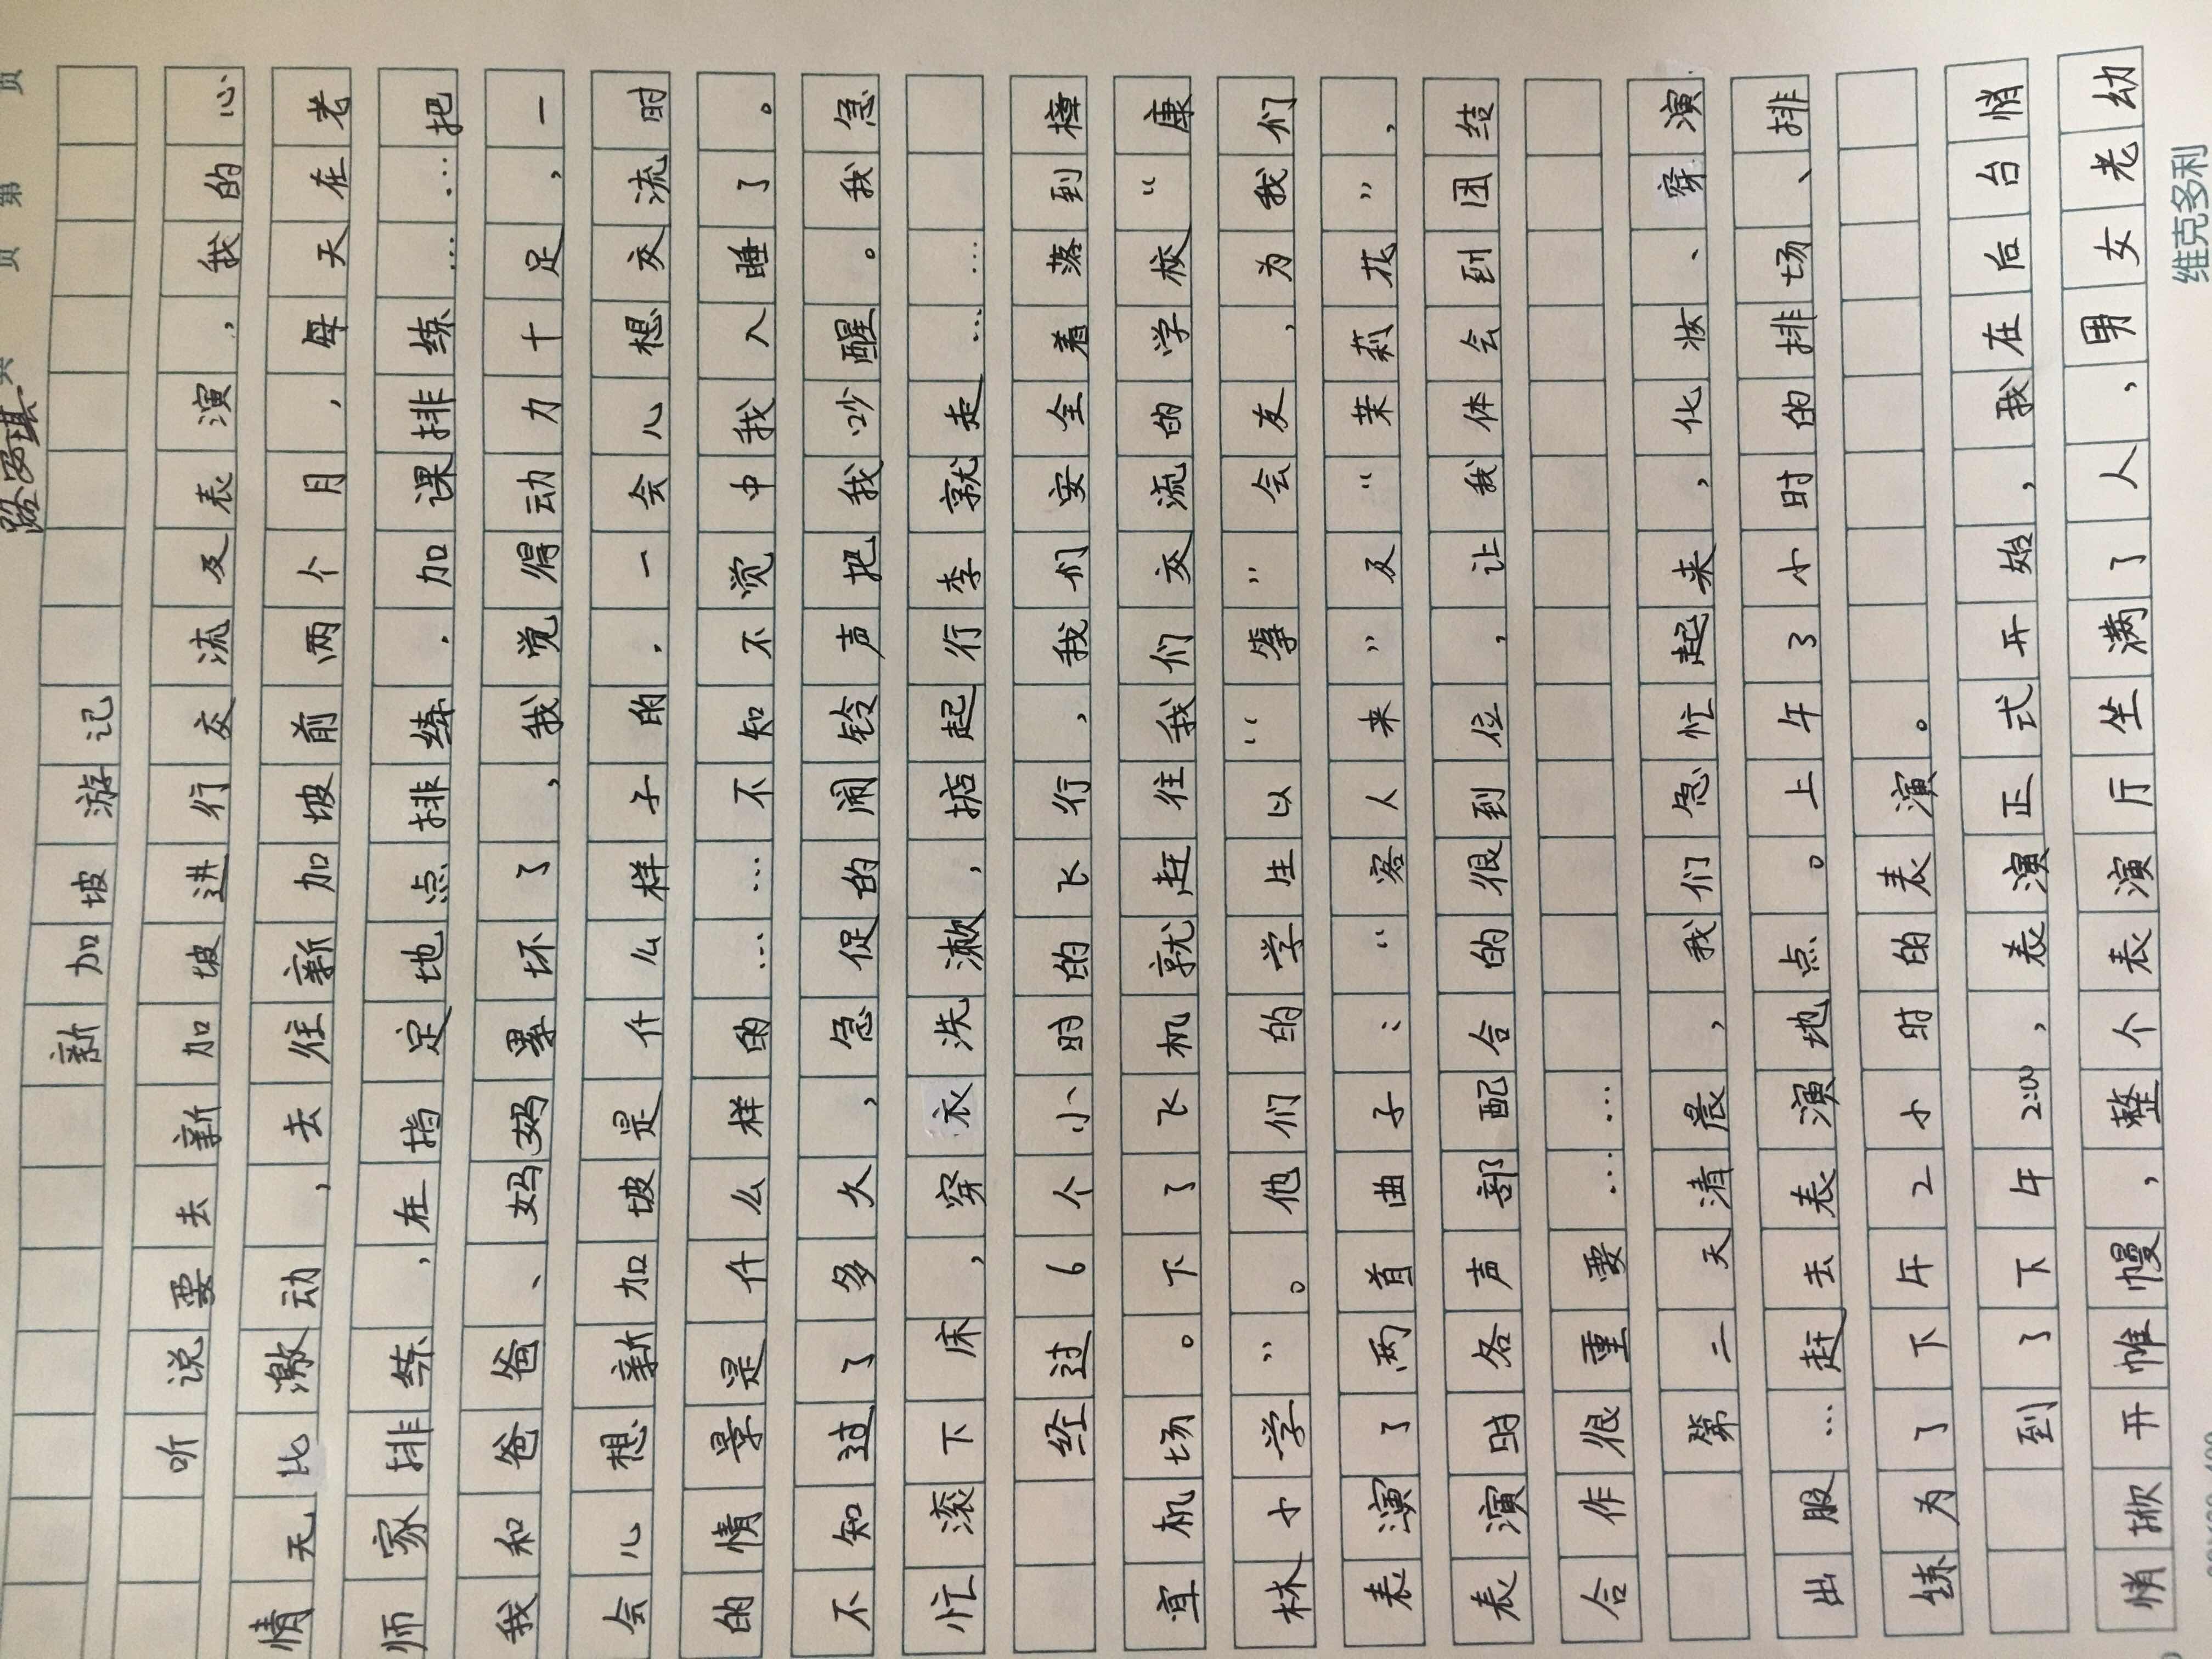 共 页 第 页
新加坡游记
听说要去新加坡进行交流及表演，我的心
情无比激动，去往新加坡前两个月，每天在老
师家排练，在指定地点排练．加课排练……把
我和爸爸、妈妈累坏了，我觉得动力十足，一
会儿想新加坡是什么样子的．一会儿想交流时
的情景是什么样的……不知不觉中我入睡了。
不知过了多久，急促的闹铃声把我吵醒。我急
忙滚下床，穿衣洗漱，掂起行李就走……
经过6个小时的飞行，我们安全着落到樟
宜机场。下了飞机就赶往我们交流的学校“康
林小学”。他们的学生以“筝”会友，为我们
表演了两首曲子：“客人来”及“茉莉花”，
表演时各声部配合的很到位，让我体会到团结
合作很重要……
第二天清晨，我们急忙起来，化妆、穿演
出服…赶去表演地点。上午3小时的排场、排
练为了下午2小时的表演。
到了下午2:00，表演正式开始，我在后台悄
悄掀开帷幔，整个表演厅坐满了人，男女老幼
维克多利